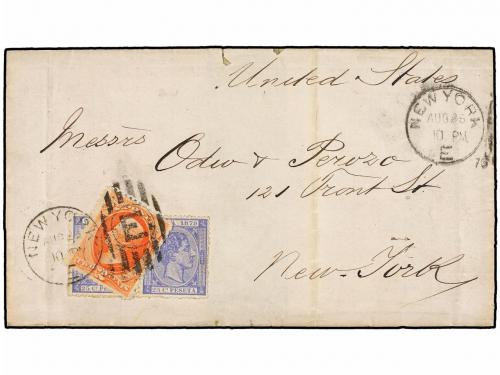 United States
NEW YORK
AUG 25
10 PM
E
Messrs
Odio & Perozo
121 Front St.
New-York
NEW YORK
10 P
A 1879
25 C. PESETA
25 CS PESETA